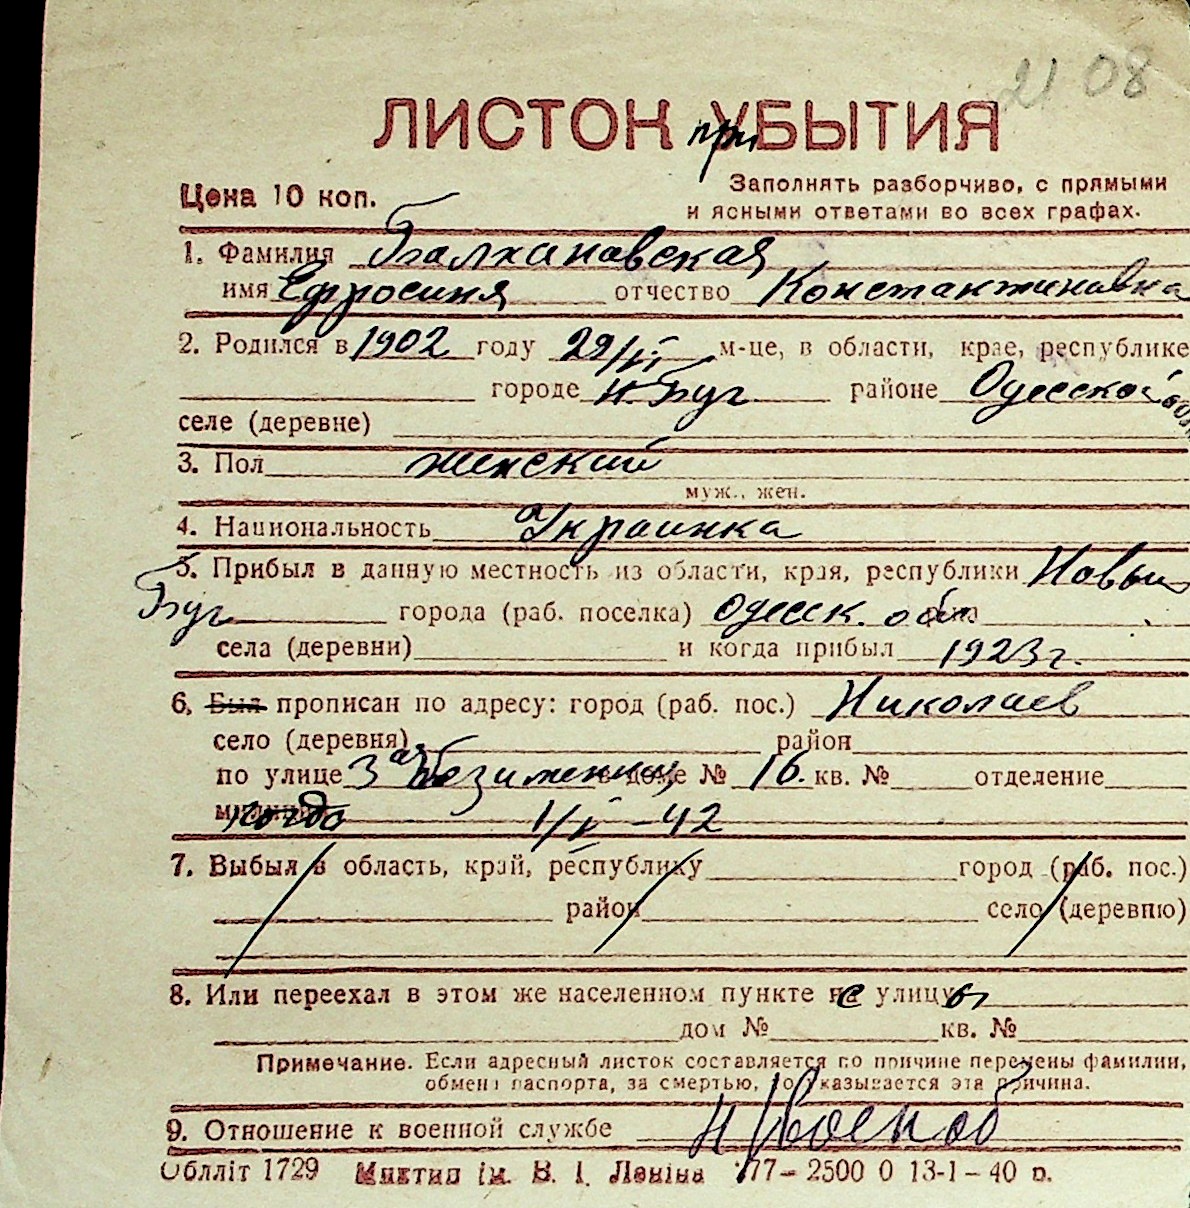 21 08
ЛИСТОК при УБЫТИЯ
Цена 10 коп.
Заполнять разборчиво, с прямыми
и ясными ответами во всех графах.
1. Фамилия Балхановская
имя Ефросиня отчество Константиновна
2. Родился в 1902 году 29/VI м-це, в области, крае, республике
городе Н. Буг районе Одесской обл.
селе (деревне)
3. Пол женский
муж., жен.
4. Национальность Украинка
5. Прибыл в данную местность из области, края, республики Новый
Буг города (раб. поселка) Одесск. обл.
села (деревни) и когда прибыл 1923 г.
6. Был прописан по адресу: город (раб. пос.) Николаев
село (деревня) район
по улице 3ая Безименная доме № 16. кв. № отделение
когда 1/I - 42
7. Выбыл в область, край, республику город (раб. пос.)
район село (деревню)
8. Или переехал в этом же населенном пункте с улицы
дом № кв. №
Примечание. Если адресный листок составляется по причине перемены фамилии,
обмена паспорта, за смертью, то указывается эта причина.
9. Отношение к военной службе н/военноб
Обллiт 1729 Миктип iм. В. I. Ленiна 177–2500 0 13-1-40 р.